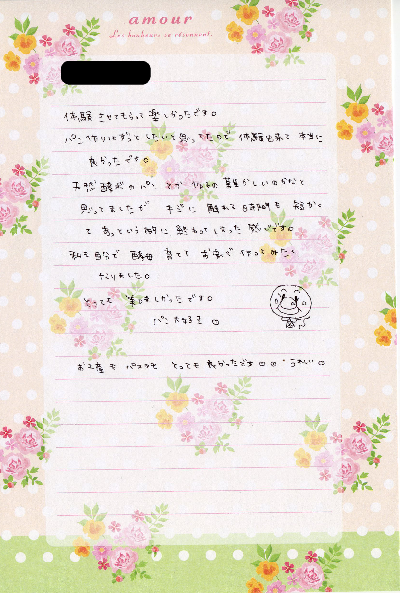 amour
Les bonheurs se réunissent.
体験 させてもらって楽しかったです。
パン作りはずっとしたいと思ってたので 体験出来て 本当に
良かったです。
天然酵母のパン
思ってましたが
て あっという間に 終わってしまった 感じです。
私も自分で 酵母 育てて お家で 作ってみたく
なりました。
とっても 楽しかったです。
パン 大好き
お土産も パスタも とっても 良かったです うれしい